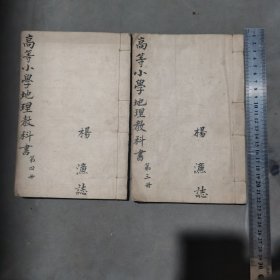 高等小學地理教科書
第四册
楊漁誌
高等小學地理教科書
第三册
楊漁誌